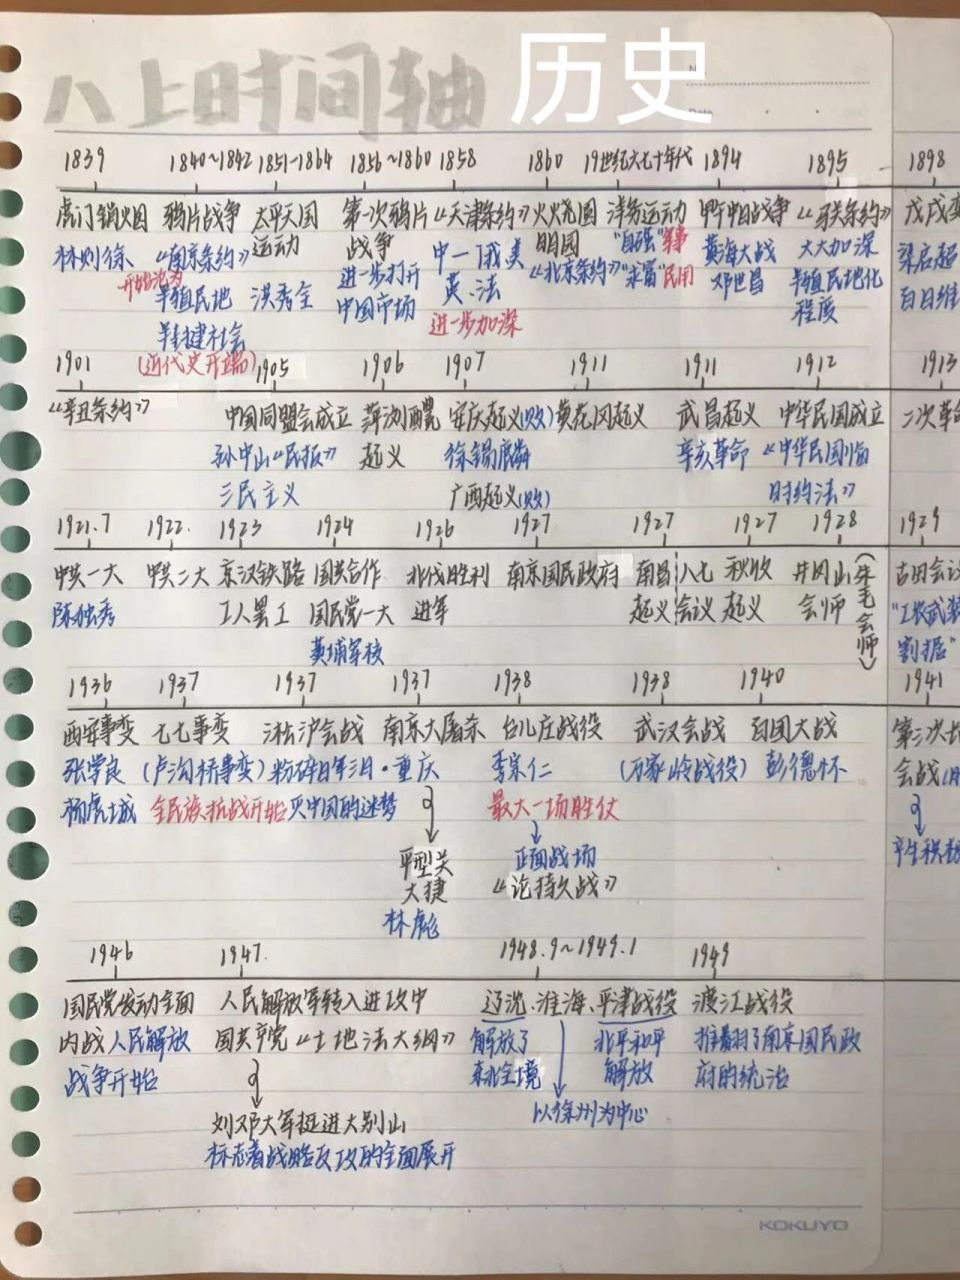 八上时间轴 历史
1839 1840~1842 1851-1864 1856~1860 1858 1860 19世纪六七十年代 1894 1895 1898
虎门销烟 鸦片战争 太平天国 第一次鸦片 《天津条约》 火烧圆 洋务运动 甲午中日战争 《马关条约》 戊戌变
林则徐、 《南京条约》 运动 战争 中一俄美 明园 "自强"军事 黄海大战 大大加深 梁启超
开始沦为 半殖民地 洪秀全 进一步打开 英、法 《北京条约》 "求富"民用 邓世昌 半殖民地化 百日维
半封建社会 中国市场 进一步加深 程度
(近代史开端)
1901 1905 1906 1907 1911 1911 1912 1913
《辛丑条约》 中国同盟会成立 萍浏醴 安庆起义(败) 黄花冈起义 武昌起义 中华民国成立 二次革命
孙中山《民报》 起义 徐锡麟 辛亥革命 《中华民国临
三民主义 广西起义(败) 时约法》
1921.7 1922. 1923 1924 1926 1927 1927 1927 1928 1929
中共一大 中共二大 京汉铁路 国共合作 北伐胜利 南京国民政府 南昌 八七 秋收 井冈山 (朱毛会师) 古田会议
陈独秀 工人罢工 国民党一大 进军 起义 会议 起义 会师 "工农武装
黄埔军校 割据"
1936 1937 1937 1937 1938 1938 1940 1941
西安事变 七七事变 淞沪会战 南京大屠杀 台儿庄战役 武汉会战 百团大战 第三次长
张学良 (卢沟桥事变) 粉碎日军3月·重庆 李宗仁 (万家岭战役) 彭德怀 会战
杨虎城 全民族抗战开始 灭中国的迷梦 最大一场胜仗
平型关 正面战场
大捷 《论持久战》
林彪
1946 1947. 1948.9~1949.1 1949
国民党发动全面 人民解放军转入进攻中 辽沈、淮海、平津战役 渡江战役
内战 人民解放 国共产党《土地法大纲》 解放了 北平和平 推翻了南京国民政
战争开始 东北全境 解放 府的统治
刘邓大军挺进大别山 以徐州为中心
标志着战略反攻的全面展开
KOKUYO